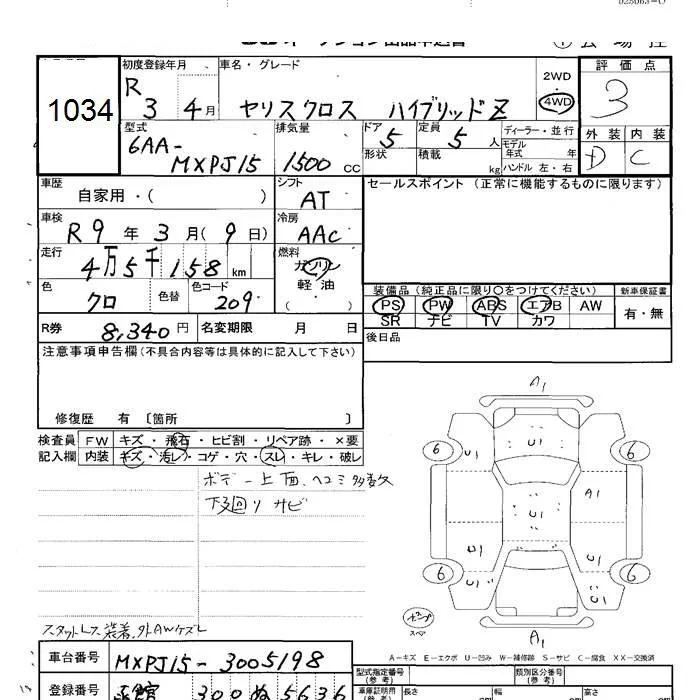 1034
初度登録年月
R 3 4月
車名・グレード
ヤリスクロス ハイブリッドZ
2WD
・
4WD
評価点
3
外装 内装
D C
型式
6AA-
MXPJ15
排気量
1500 cc
ドア 5
形状
定員 5 人
積載 kg
ディーラー・並行
モデル年式 年
ハンドル 左・右
車歴
自家用・( )
シフト
AT
セールスポイント (正常に機能するものに限ります)
車検
R9 年 3 月( 9 日)
冷房
AAC
走行
4万5千158 km
燃料
ガソリン
軽油
( )
色
クロ
色替
色コード
209
装備品 (純正品に限り〇をつけてください)
新車保証書
PS PW ABS エアB AW
SR ナビ TV カワ
有・無
R券 8,340円
名変期限 月 日
後日品
注意事項申告欄 (不具合内容等は具体的に記入して下さい)
修復歴 有 〔箇所 〕
検査員記入欄
FW キズ・飛石・ヒビ割・リペア跡・×要
内装 キズ・汚レ・コゲ・穴・スレ・キレ・破レ
ボデー上面、ヘコミ多数
下回りサビ
スタットレス装着、外AWケズレ
A1
U1
6 U1 6
A1
U1
U1 U1
6 U1 U1 6
スペア
A1
A-キズ E-エクボ U-凹み W-補修跡 S-サビ C-腐食 XX-交換済
車台番号 MXPJ15-3005198
型式指定番号
(参考)
類別区分番号
(参考)
登録番号 函館 300 ぬ 5636
車庫証明用
長さ cm 幅 cm 高さ cm